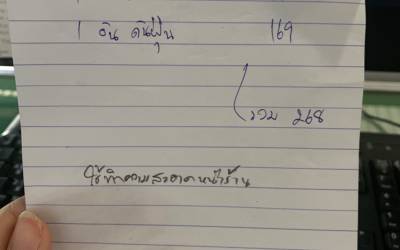 1 อัน ดันฝุ่น 169
รวม 268
ใช้ทำความสะอาดหน้าร้าน